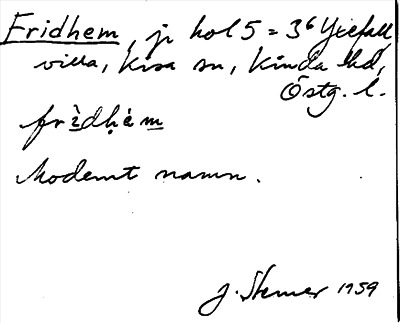 Fridhem, jr hol 5 = 3⁶ Yxefall
villa, Kisa sn, Kinda hd,
Östg. l.
frìdḥ́em
Modernt namn.
J. Stemer 1959